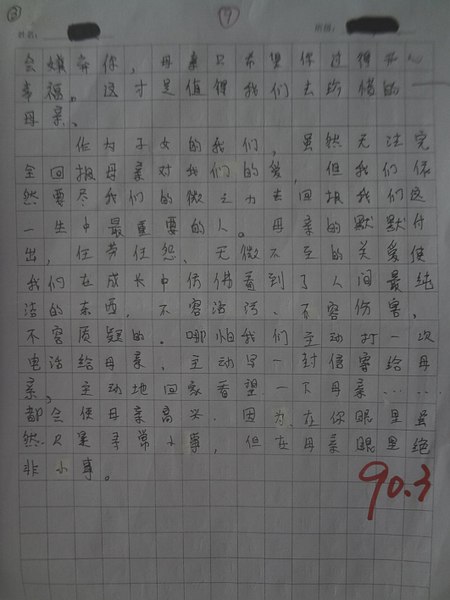 ②
9
姓名:
会嫌弃你，母亲只希望你过得开心
幸福。这才是值得我们去珍惜的——
母亲、
作为子女的我们，虽然无法完
全回报母亲对我们的爱，但我们依
然要尽我们的微之力去回报我们这
一生中最重要的人。母亲的默默付
出，任劳任怨、无微不至的关爱使
我们在成长中仿佛看到了人间最纯
洁的东西，不容沾污、不容伤害、
不容质疑的。哪怕我们主动打一次
电话给母亲、主动写一封信寄给母
亲，主动地回家看望一下母亲……
都会使母亲高兴．因为，在你眼里虽
然只是寻常小事，但在母亲眼里绝
非小事。
90.3